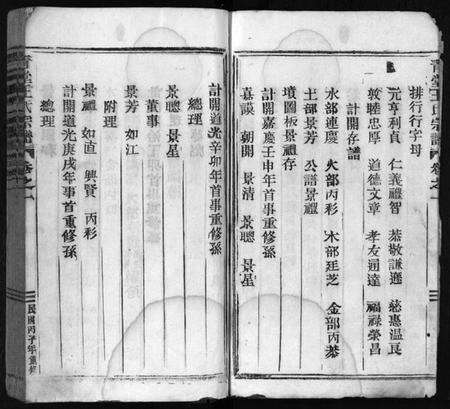 排行行字母
元亨利貞 仁義禮智 恭敬謙遜 慈惠温良
敦睦忠厚 道德文章 孝友通達 福祿榮昌
計開存譜
水部連慶 火部丙彩 木部廷芝 金部丙恭
土部景芳 公譜景禮
墳圖板景禮存
計開嘉慶壬申年首事重修孫
嘉謨 朝開 景清 景聰 景星
計開道光辛卯年首事重修孫
總理
景聰 景星
董事
景芳 如江
附理
景禮 如直 興賢 丙彩
計開道光庚戌年事首重修孫
總理
民國丙子年重修